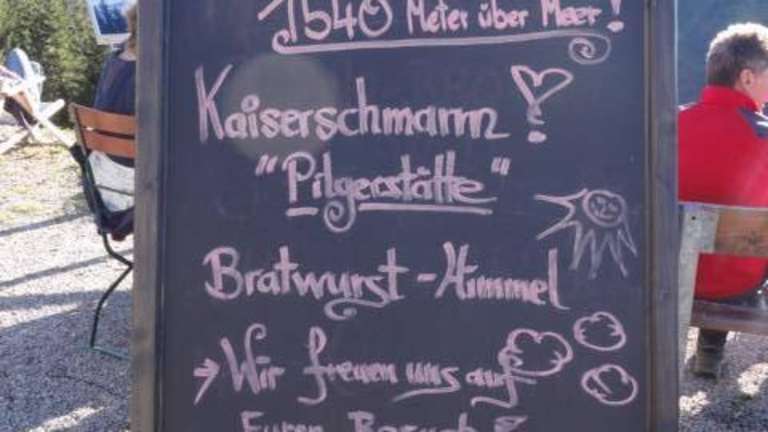 1540 Meter über Meer!
Kaiserschmarrn!
"Pilgerstätte"
Bratwurst-Himmel
→ Wir freuen uns auf
Euren Besuch!